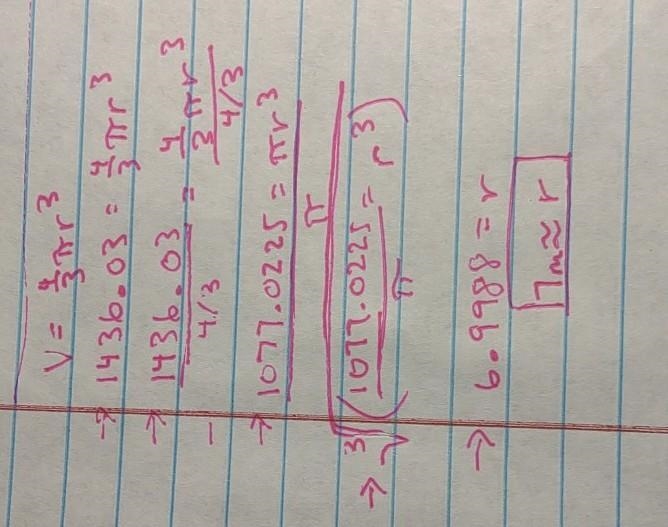 V = 4/3 πr³
→ 1436.03 = 4/3 πr³
→ 1436.03 / 4/3 = 4/3 πr³ / 4/3
→ 1077.0225 = πr³ / π
→ ³√(1077.0225 / π = r³)
→ 6.9988 = r
7m ≈ r